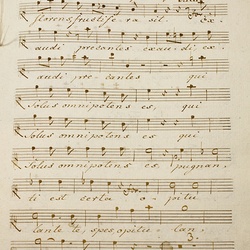 florens frustife-ra sit. Ex-
audi precantes exau-di ex-
audi pre-cantes qui
Solus omnipotens es, qui
Solus omnipotens es qui
Solus omnipotens es, pugnan-
ti est certa o-pitu
lante te spes opitu-lan.
3.